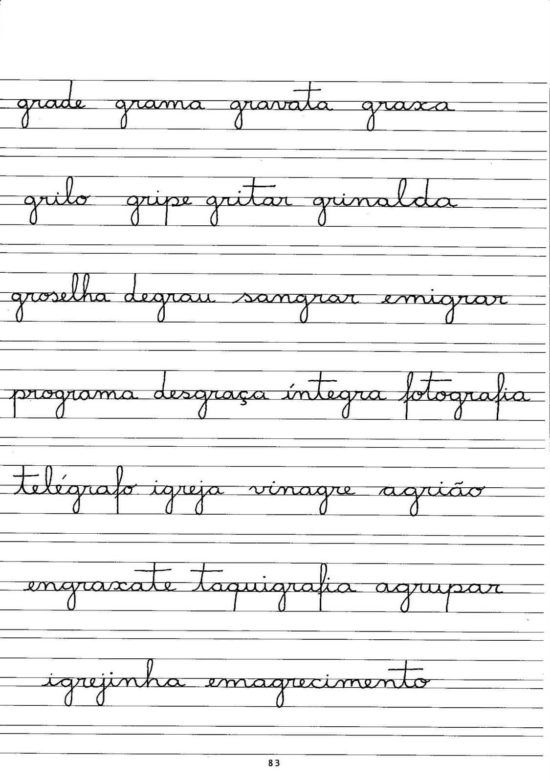 grade grama gravata graxa
grilo gripe gritar grinalda
groselha degrau sangrar emigrar
programa desgraça íntegra fotografia
telégrafo igreja vinagre agrião
engraxate taquigrafia agrupar
igrejinha emagrecimento
83